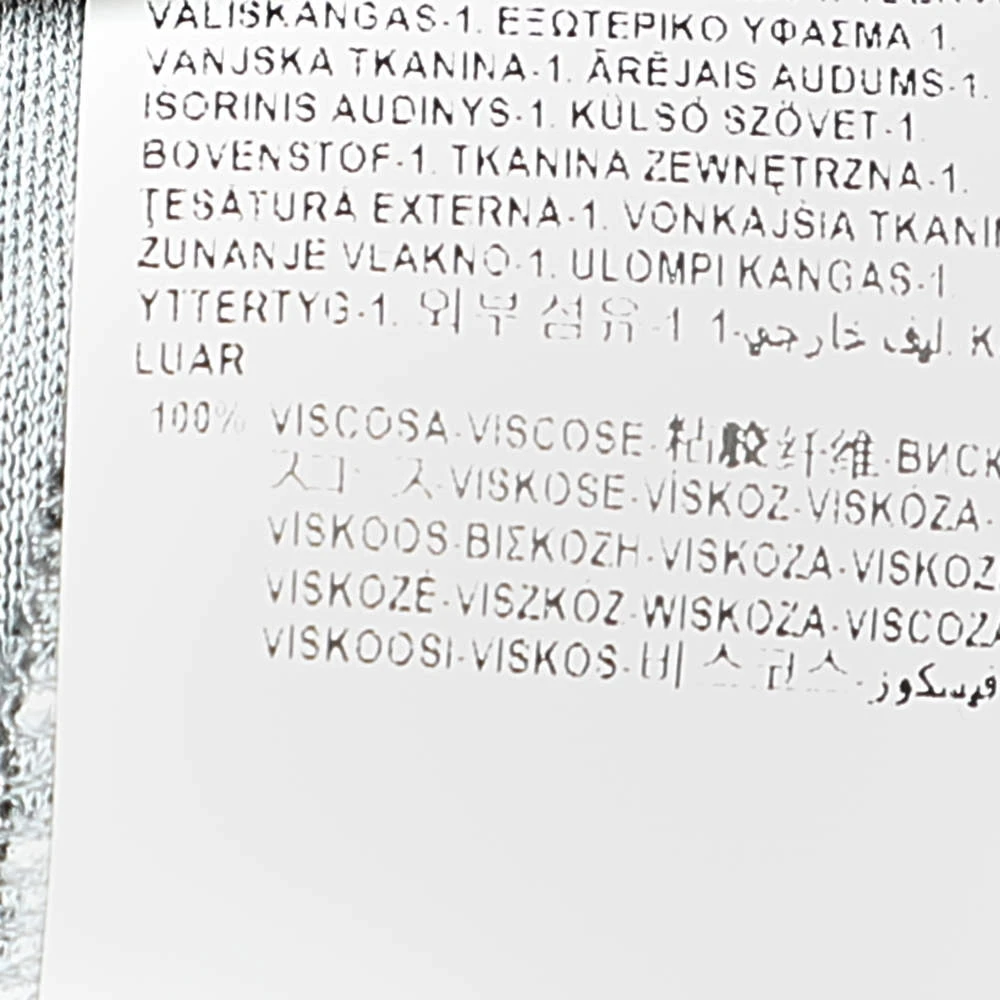 VALISKANGAS-1. ΕΞΩΤΕΡΙΚΟ ΥΦΑΣΜΑ 1.
VANJSKA TKANINA-1. ĀRĒJAIS AUDUMS-1.
IŠORINIS AUDINYS-1. KÜLSŐ SZÖVET-1.
BOVENSTOF-1. TKANINA ZEWNĘTRZNA-1.
ŢESĂTURĂ EXTERNĂ-1. VONKAJŠIA TKANI
ZUNANJE VLAKNO-1. ULOMPI KANGAS-1.
YTTERTYG-1. 외부 섬유-1 ليف خارجي-1. K
LUAR
100% VISCOSA-VISCOSE-粘胶纤维-ВИСК
VISKOSE-VİSKOZ-VISKÓZA-
VISKOOS-ΒΙΣΚΟΖΗ-VISKOZA-VISKOZ
VISKOZĖ-VISZKÓZ-WISKOZA-VISCOZ
VISKOOSI-VISKOS-비스코스-فيسكوز